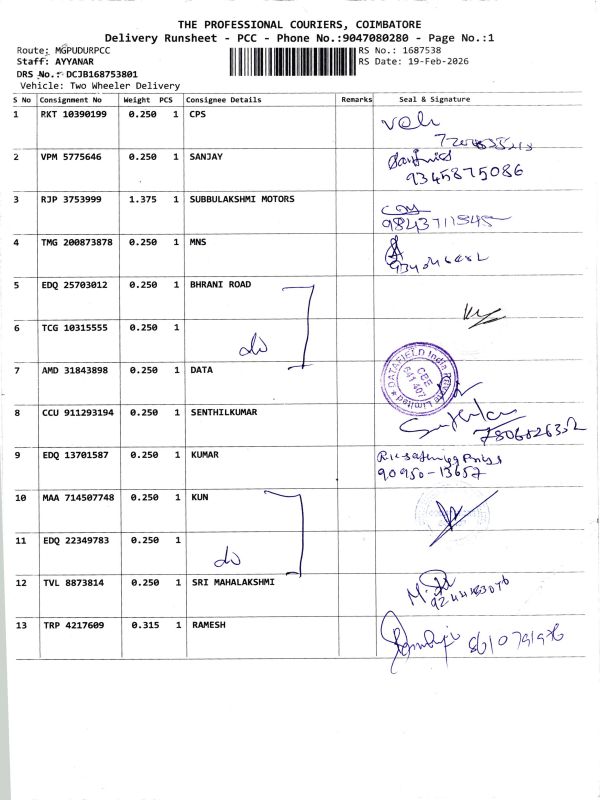 THE PROFESSIONAL COURIERS, COIMBATORE
Delivery Runsheet - PCC - Phone No.:9047080280 - Page No.:1
Route: MGPUDURPCC RS No.: 1687538
Staff: AYYANAR RS Date: 19-Feb-2026
DRS No.: DCJB168753801
Vehicle: Two Wheeler Delivery
S No Consignment No Weight PCS Consignee Details Remarks Seal & Signature
1 RKT 10390199 0.250 1 CPS
2 VPM 5775646 0.250 1 SANJAY
9345875086
3 RJP 3753999 1.375 1 SUBBULAKSHMI MOTORS
4 TMG 200873878 0.250 1 MNS
5 EDQ 25703012 0.250 1 BHRANI ROAD
6 TCG 10315555 0.250 1 do
7 AMD 31843898 0.250 1 DATA DATAFIELD India Private Limited CBE 641 407
8 CCU 911293194 0.250 1 SENTHILKUMAR
9 EDQ 13701587 0.250 1 KUMAR
90950-13657
10 MAA 714507748 0.250 1 KUN
11 EDQ 22349783 0.250 1 do
12 TVL 8873814 0.250 1 SRI MAHALAKSHMI
13 TRP 4217609 0.315 1 RAMESH